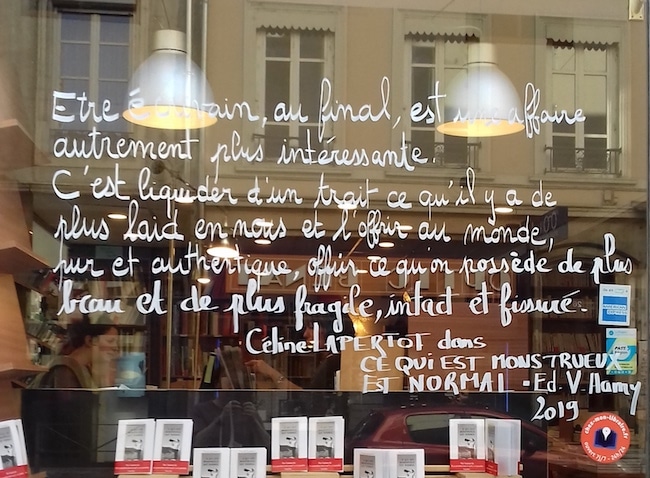 Etre écrivain, au final, est une affaire
autrement plus intéressante.
C'est liquider d'un trait ce qu'il y a de
plus laid en nous et l'offrir au monde,
pur et authentique, offrir ce qu'on possède de plus
beau et de plus fragile, intact et fissuré.
Céline LAPERTOT dans
CE QUI EST MONSTRUEUX
EST NORMAL - Ed. V. Hamy
2019
chez-mon-libraire.fr